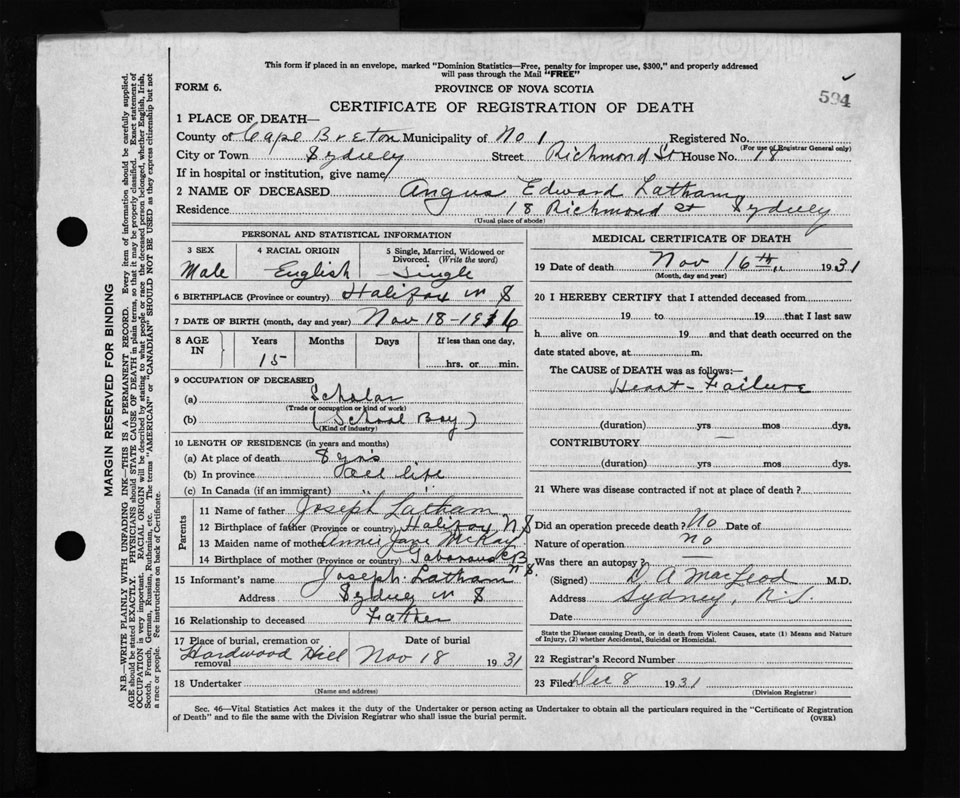 This form if placed in an envelope, marked "Dominion Statistics—Free, penalty for improper use, $300," and properly addressed
will pass through the Mail "FREE"
FORM 6.
PROVINCE OF NOVA SCOTIA
594
CERTIFICATE OF REGISTRATION OF DEATH
1 PLACE OF DEATH—
County of Cape Breton Municipality of No 1 Registered No.
(For use of Registrar General only)
City or Town Sydney Street Richmond St House No. 18
If in hospital or institution, give name
2 NAME OF DECEASED Angus Edward Latham
Residence 18 Richmond St Sydney
(Usual place of abode)
PERSONAL AND STATISTICAL INFORMATION
3 SEX
Male
4 RACIAL ORIGIN
English
5 Single, Married, Widowed or
Divorced. (Write the word)
Single
6 BIRTHPLACE (Province or country) Halifax N S
7 DATE OF BIRTH (month, day and year) Nov 18-1916
8 AGE
IN
Years Months Days If less than one day,
15 hrs. or min.
9 OCCUPATION OF DECEASED
(a) Scholar
(Trade or occupation or kind of work)
(b) (School Boy)
(Kind of industry)
10 LENGTH OF RESIDENCE (in years and months)
(a) At place of death 8 yrs
(b) In province all life
(c) In Canada (if an immigrant) " "
Parents
11 Name of father Joseph Latham
12 Birthplace of father (Province or country) Halifax N S
13 Maiden name of mother Annie Jane McKay
14 Birthplace of mother (Province or country) Gabarouse C B
N S.
15 Informant's name Joseph Latham
Address Sydney N S
16 Relationship to deceased Father
17 Place of burial, cremation or
removal Hardwood Hill
Date of burial
Nov 18 1931
18 Undertaker
(Name and address)
MEDICAL CERTIFICATE OF DEATH
19 Date of death Nov 16th, 1931
(Month, day and year)
20 I HEREBY CERTIFY that I attended deceased from
19 to 19 that I last saw
h alive on 19 and that death occurred on the
date stated above, at m.
The CAUSE of DEATH was as follows:—
Heart-Failure
(duration) yrs mos dys.
CONTRIBUTORY —
(duration) yrs mos dys.
21 Where was disease contracted if not at place of death?
Did an operation precede death? No Date of
Nature of operation no
Was there an autopsy? —
(Signed) D. A MacLeod M.D.
Address Sydney, N.S.
Date
State the Disease causing Death, or in death from Violent Causes, state (1) Means and Nature
of Injury, (2) whether Accidental, Suicidal or Homicidal.
22 Registrar's Record Number
23 Filed Dec 8 1931
(Division Registrar)
Sec. 46—Vital Statistics Act makes it the duty of the Undertaker or person acting as Undertaker to obtain all the particulars required in the "Certificate of Registration
of Death" and to file the same with the Division Registrar who shall issue the burial permit.
(OVER)
MARGIN RESERVED FOR BINDING
N.B.—WRITE PLAINLY WITH UNFADING INK—THIS IS A PERMANENT RECORD. Every item of information should be carefully supplied.
AGE should be stated EXACTLY. PHYSICIANS should STATE CAUSE OF DEATH in plain terms, so that it may be properly classified. Exact statement of
OCCUPATION is very important. RACIAL ORIGIN will be described by stating to what people or race the deceased person belonged, whether English, Irish,
Scotch, French, German, Russian, Ruthenian, etc. The terms "AMERICAN" or "CANADIAN" SHOULD NOT BE USED as they express citizenship but not
a race or people. See instructions on back of Certificate.